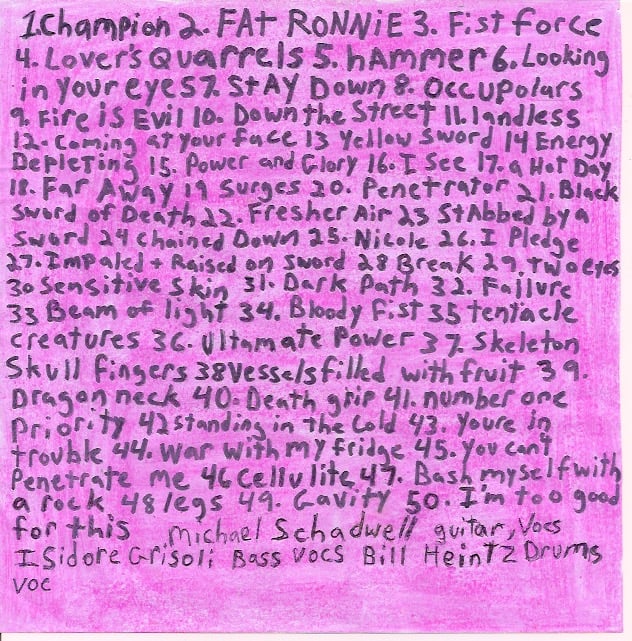 1. Champion 2. FAt RoNNiE 3. Fist force
4. Lover's Quarrels 5. hAmmer 6. Looking
in your eyes 7. StAy Down 8. Occupolars
9. Fire is Evil 10. Down the Street 11. landless
12. Coming at your face 13 Yellow Sword 14 Energy
Depleting 15. Power and Glory 16. I See 17. a Hot Day
18. Far Away 19 Surges 20. Penetrator 21. Black
Sword of Death 22. Fresher Air 23 StAbbed by a
Sword 24 chained Down 25. Nicole 26. I Pledge
27. Impaled + Raised on Sword 28 Break 29. two eyes
30 Sensitive Skin 31. Dark Path 32. Failure
33 Beam of light 34. Bloody Fist 35 tentacle
creatures 36. Ultamate Power 37. Skeleton
Skull fingers 38 Vessels filled with fruit 39.
Dragon neck 40. Death grip 41. number one
Priority 42 Standing in the Cold 43. Youre in
trouble 44. War with my fridge 45. You can't
Penetrate me 46 Cellulite 47. Bash myself with
a rock 48 legs 49. Gavity 50. I'm too good
for this Michael Schadwell guitar, Vocs
ISidore Grisoli Bass vocs Bill Heintz Drums
voc